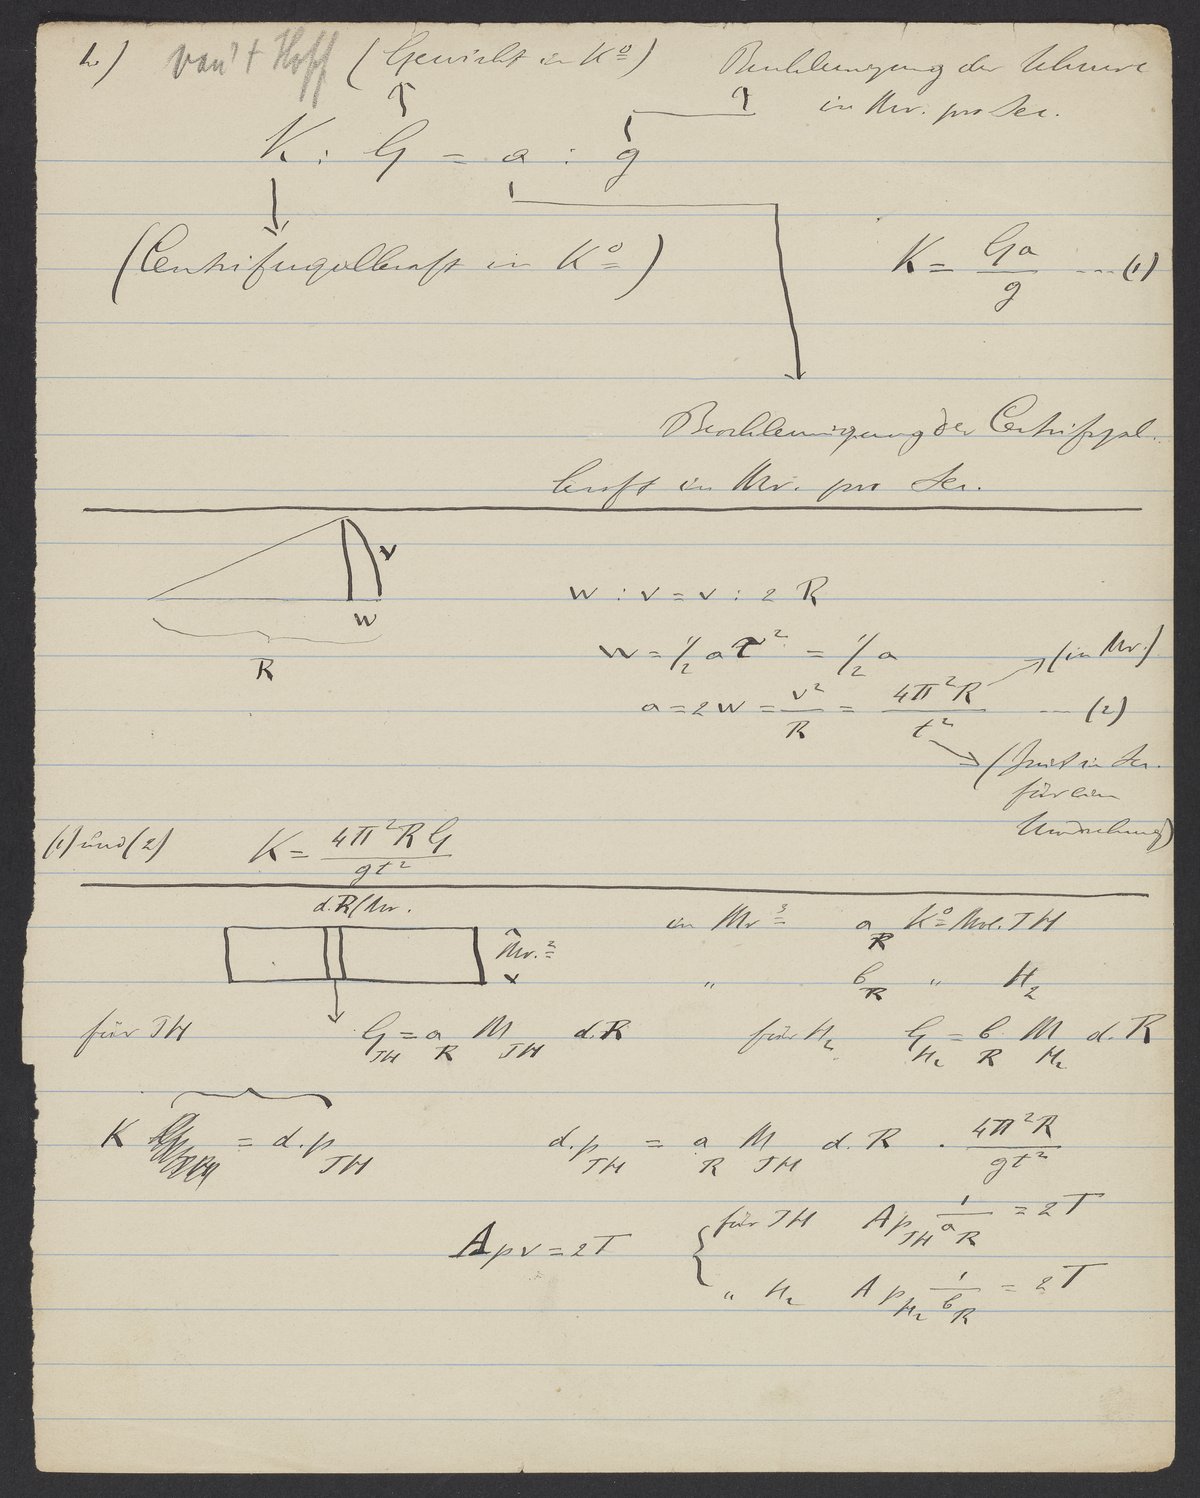 2.) van't Hoff (Gewicht in K⁰) Beschleunigung der Schwere
in Mr. pro Sec.
K : G = a : g
(Centrifugalkraft in K⁰) K = Ga/g --- (1)
Beschleunigung der Centrifugal-
kraft in Mr. pro Sec.
v
w
R
w : v = v : 2 R
w = 1/2 a τ² = 1/2 a (in Mr.)
a = 2w = v²/R = 4π²R/t² --- (2)
(Zeit in Sec.
für eine
Umdrehung)
(1) und (2) K = 4π²RG/gt²
d.R/Mr.
Mr.² in Mr³ a_R K⁰ Mol. TH
" b_R " H₂
für TH G_TH = a_R M_TH d.R für H₂ G_H₂ = b_R M_H₂ d.R
K = d.p_TH d.p_TH = a_R M_TH d.R . 4π²R/gt²
Apv = 2T { für TH A p_TH 1/a_R = 2T
" H₂ A p_H₂ 1/b_R = 2T